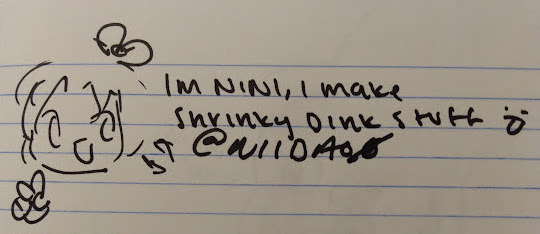 IM NINI, I make
shrinky Dink stuff :)